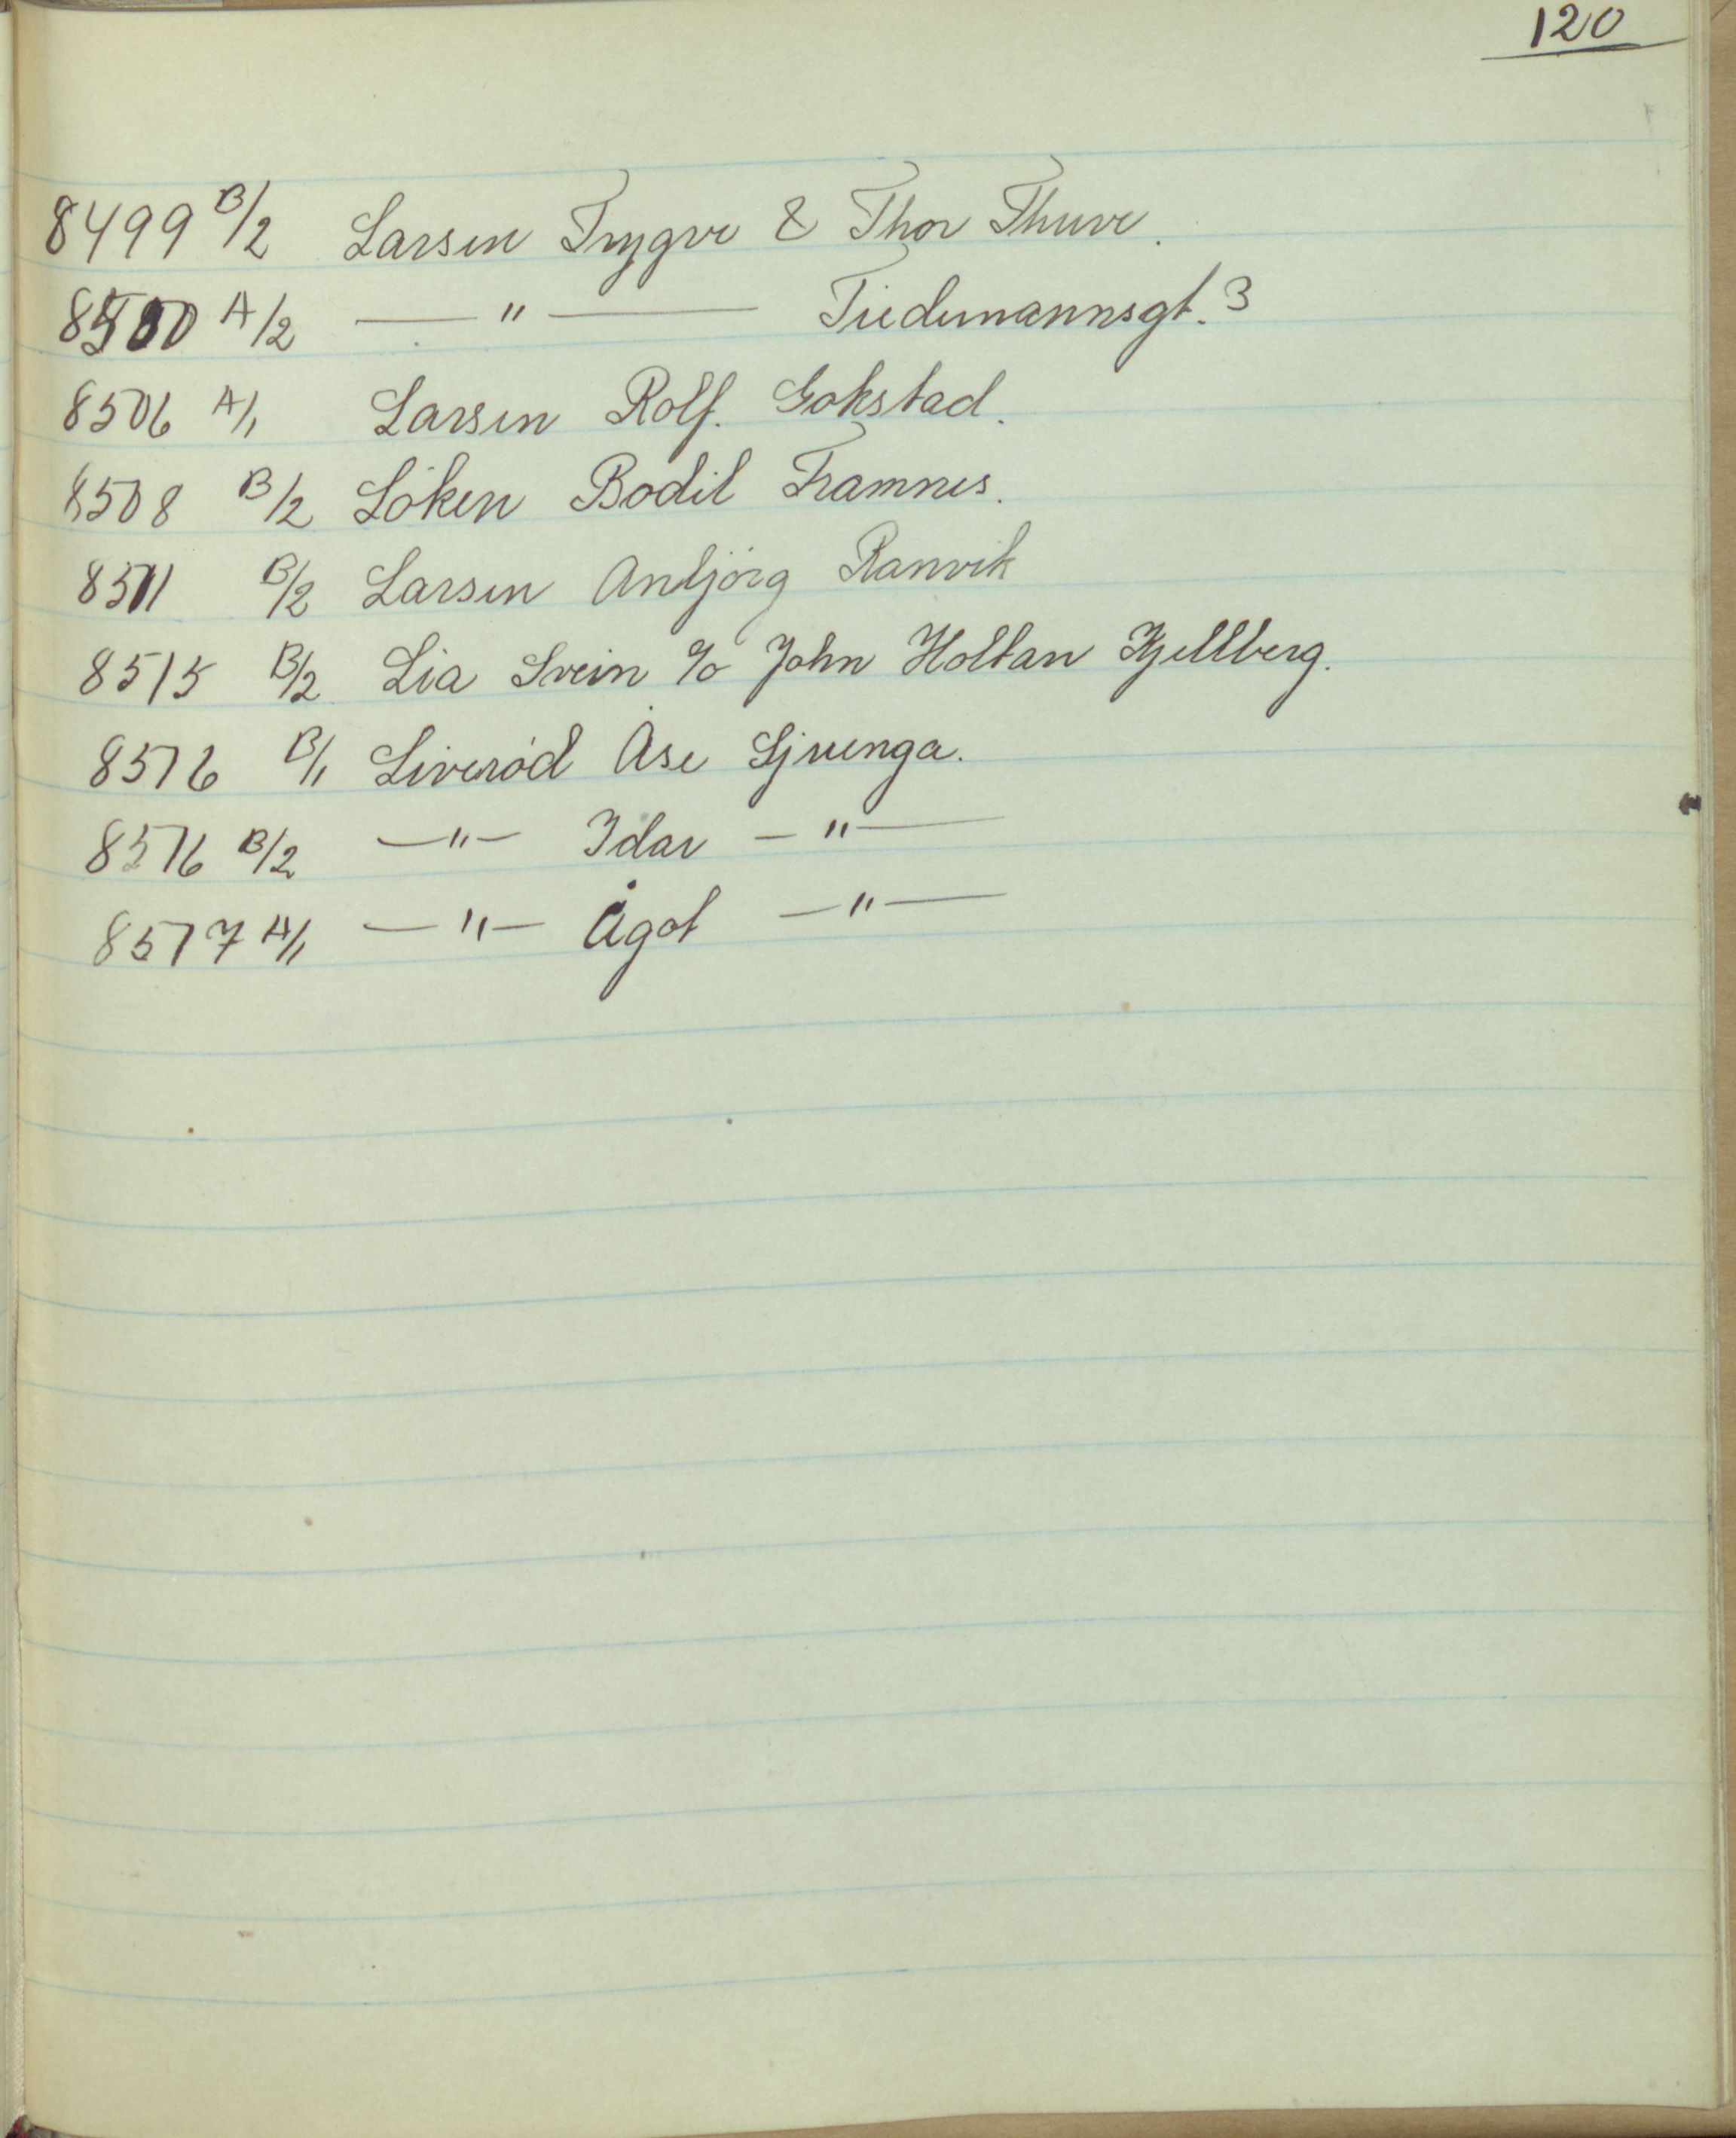 120
8499 B/2 Larsen Trygve & Thor Thuve.
8500 A/2 — " — Tiedemannsgt. 3
8506 A/1 Larsen Rolf. Gokstad.
8508 B/2 Löken Bodil Framnes.
8511 B/2 Larsen Anbjörg Ranvik
8515 B/2 Lia Svein c/o John Holtan Kjellberg.
8516 B/1 Liveröd Åse Ljvenga.
8516 B/2 — " — Idar — " —
8517 A/1 — " — Ågot — " —